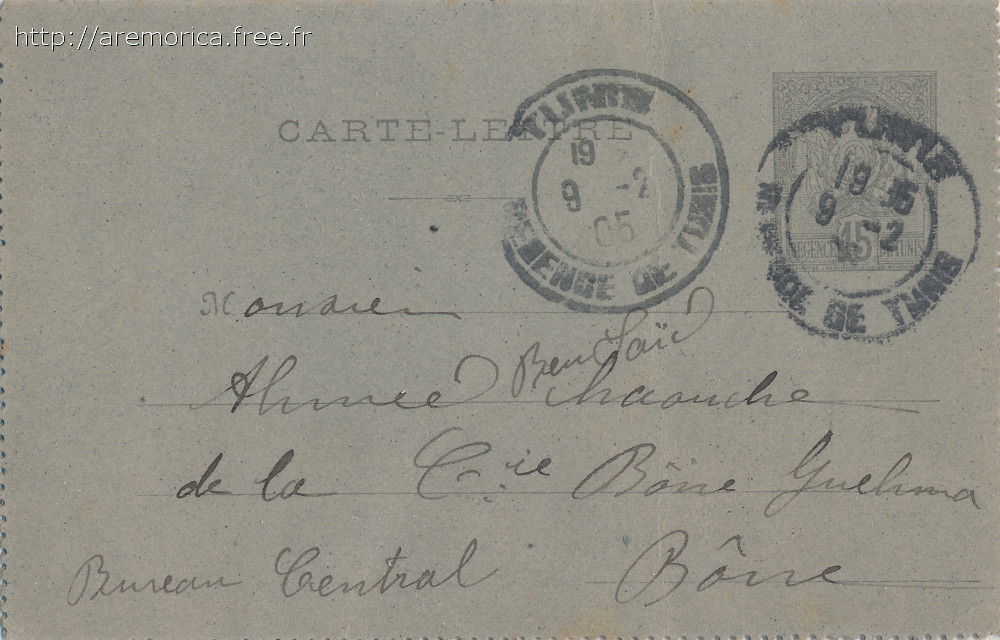 http://aremorica.free.fr
POSTES
CARTE-LETTRE
TUNIS
19
9 -2
05
REGENCE DE TUNIS
TUNIS
19
9 -2
REGENCE DE TUNIS
15
REGENCE DE TUNIS
Monsieur
Ben Saïd
Ahmed Chaouche
de la Cie Bône Guelma
Bureau Central Bône